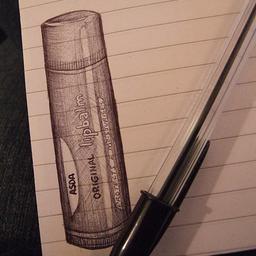 ASDA
ORIGINAL
lipbalm